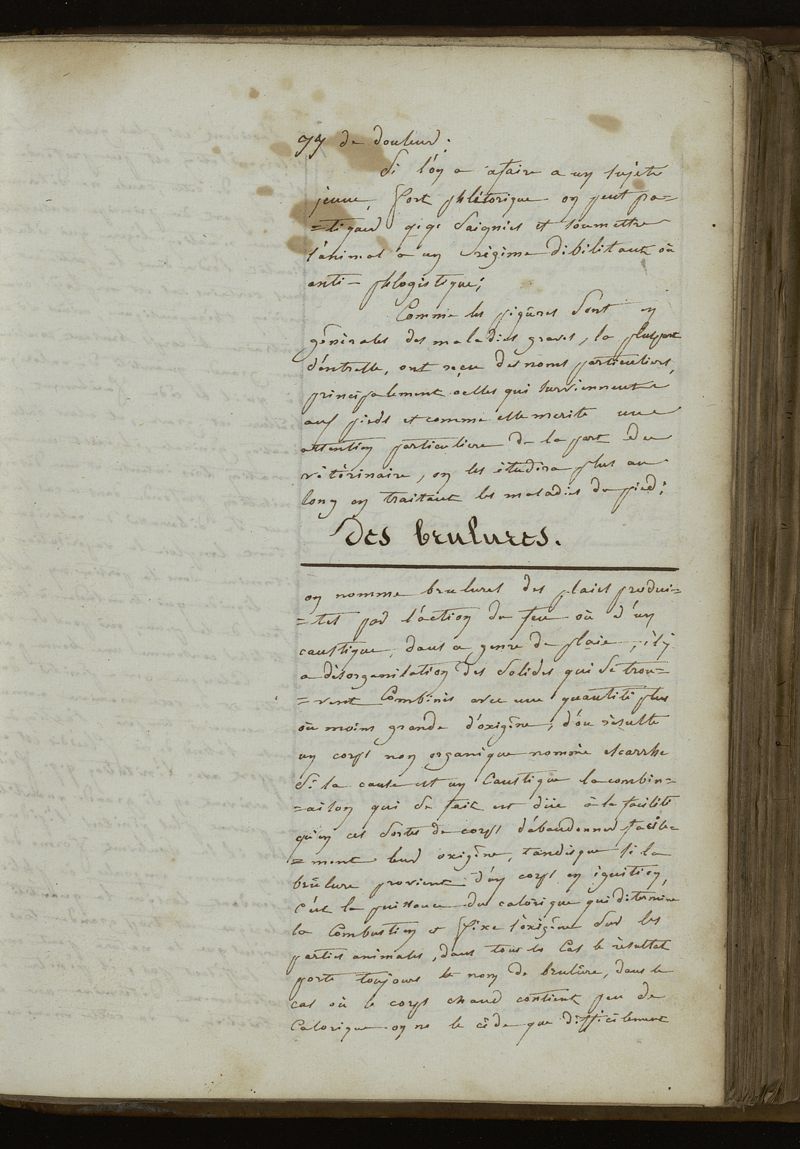 99 de douleur;
Si l'on a afaire a un sujete
jeune, fort phlétorique on peut pra-
=tiquer q.q. saignies et soumettre
l'animal a un régime dibilitant où
anti-phlogistique;
Comme les piqûres sont en
générales des maladies graves, la pluspart
d'entrelle, ont reçue des noms particuliers,
principalement celles qui surviennent
aux pieds et comme elle merite une
attention particuliere de la part du
vétérinaire, on les étudira plus au
long en traitant les maladies du pied;
Des brulures.
on nomme brulures des plaies produi-
=tes par l'action du feu où d'un
caustique, dans ce genre de plaie, il y
a désorganisation des solides qui se trou-
=vent Combinés avec une quantité plus
où moins grande d'oxigène, d'où résulte
un corps non organique nommée escarrhe
Si la cause est un Caustique la combin-
=aison qui se fait est düe à la facilité
qu'on ces sortes de corps d'abandonner facile-
=ment leur oxigène, tandisque si la
brûlure provient d'un corps en ignition,
c'est la puissance du calorique qui ditermine
la Combustion et fixe l'oxigène sur les
parties animales, dans tous les Cas le résultat
porte toujours le nom de brulure, dans le
cas où le corps chaud contient peu de
Calorique on ne le cède que difficilement